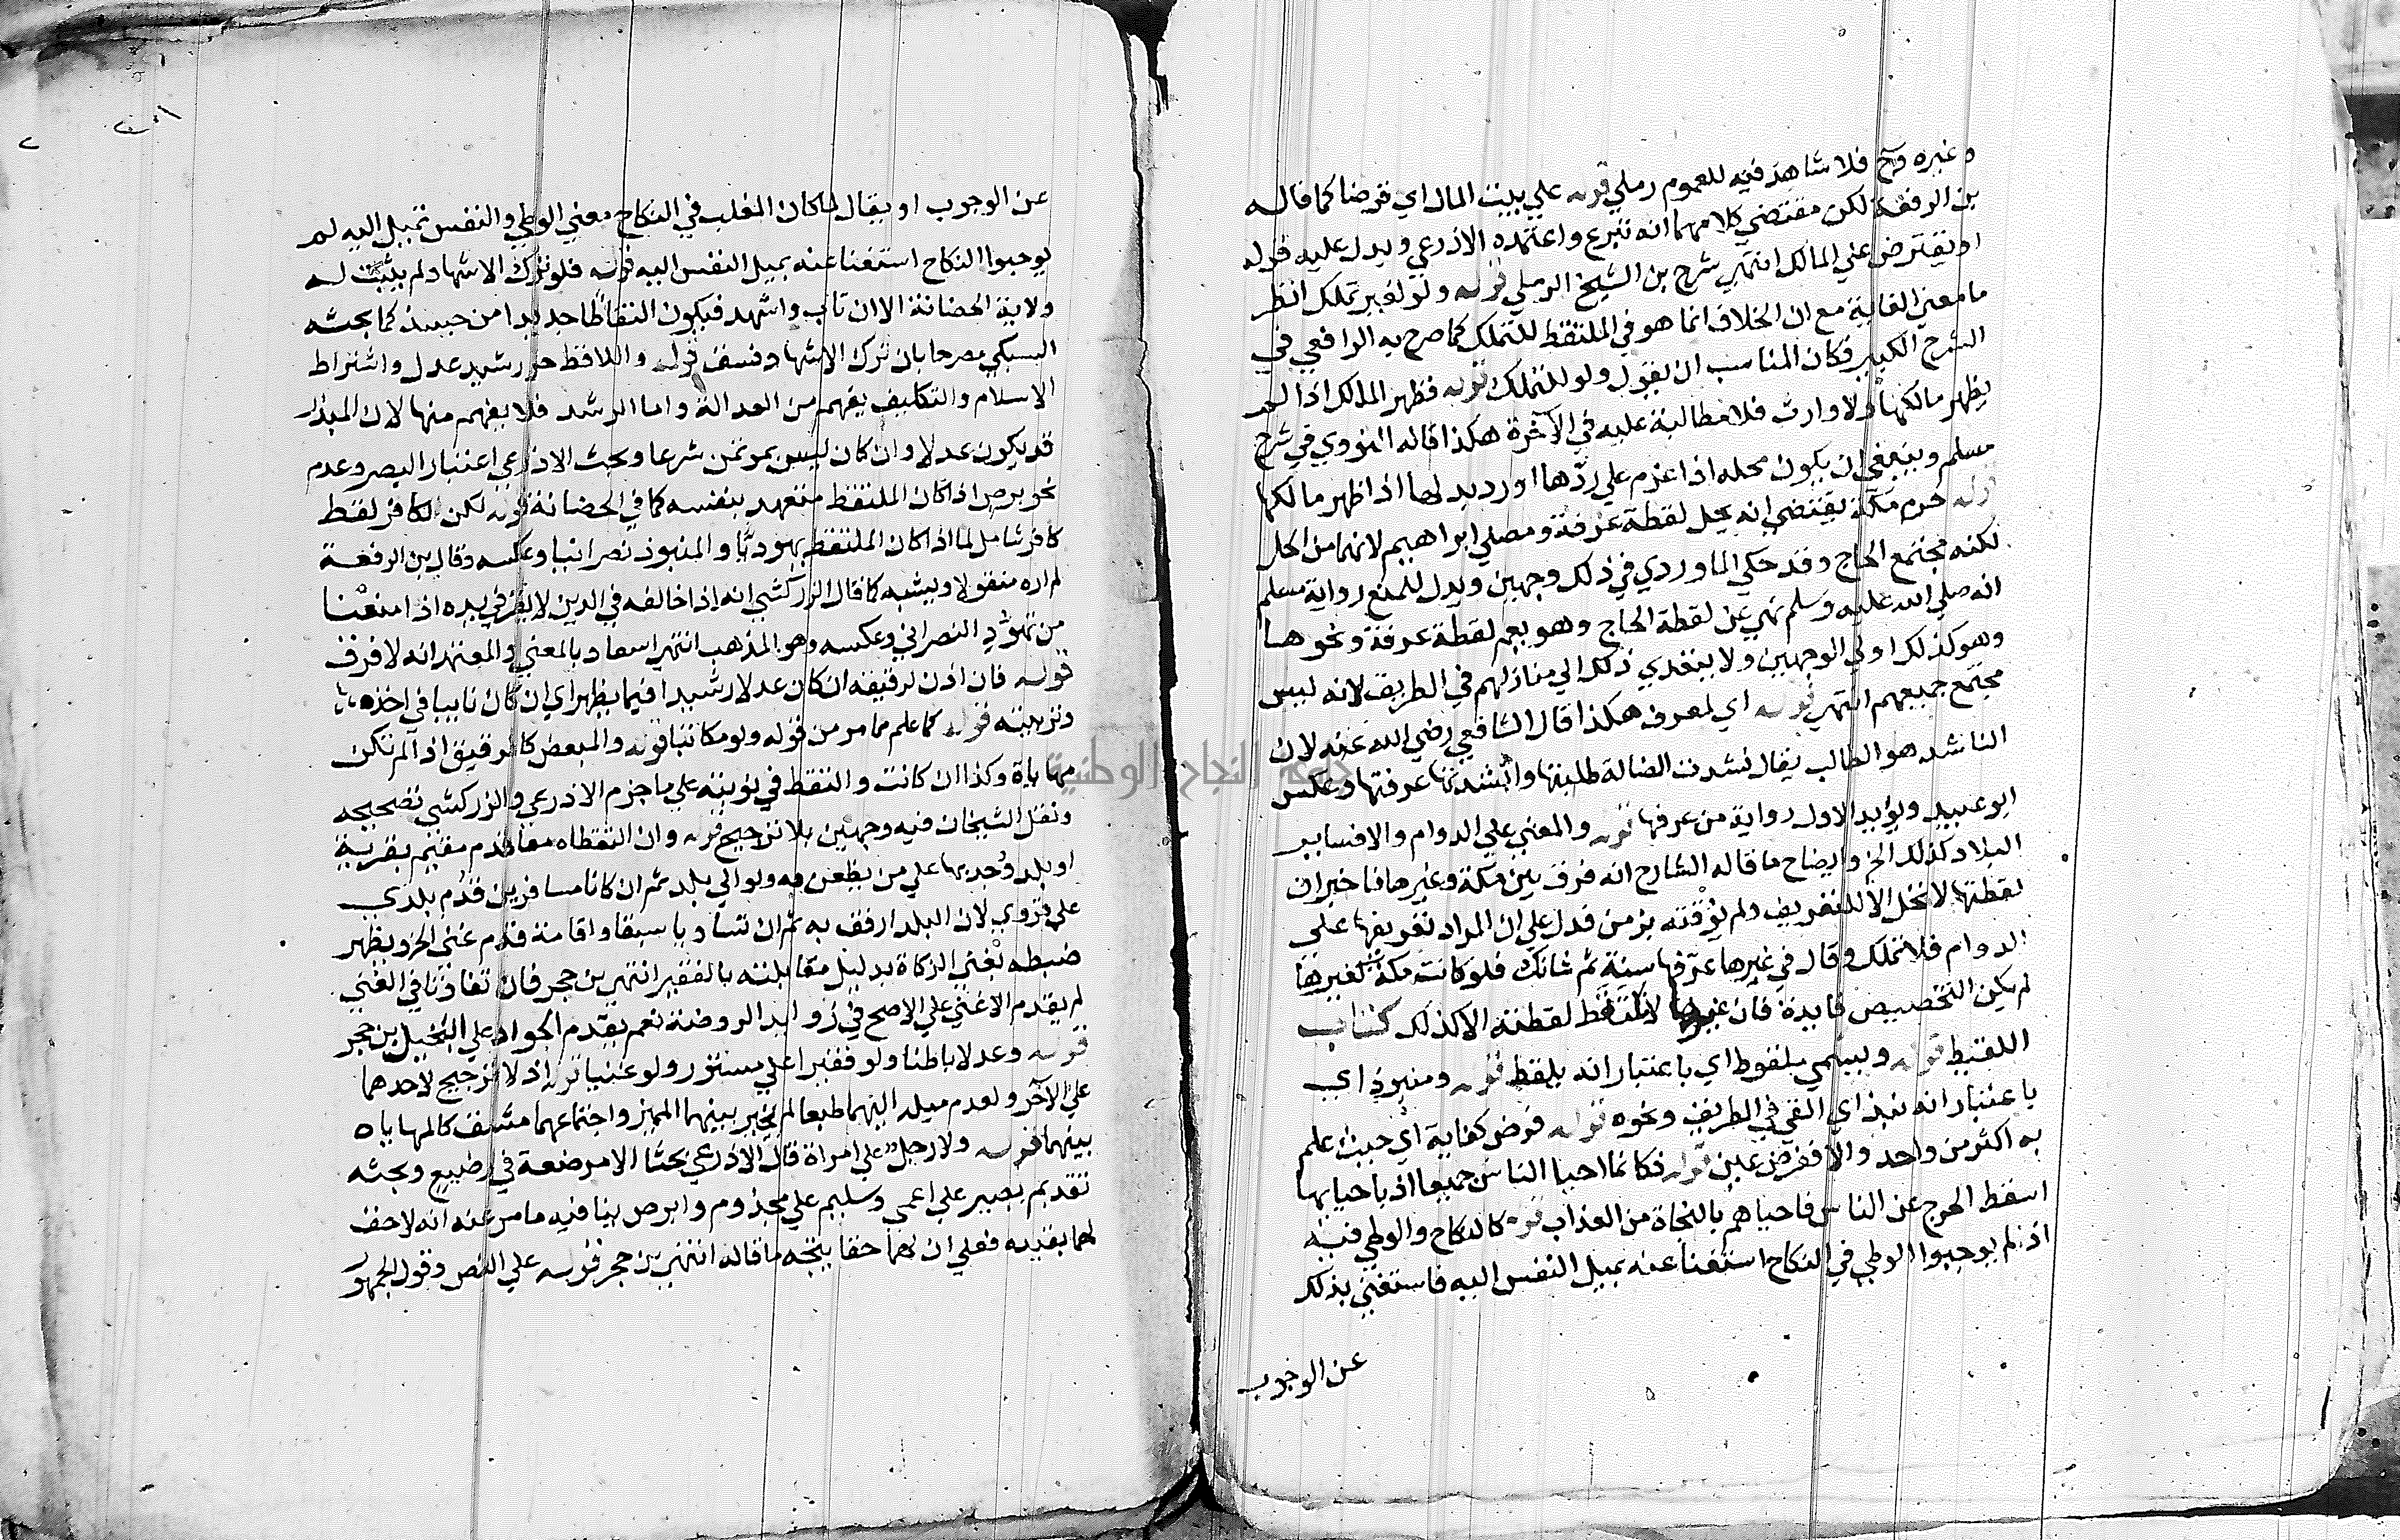 وغيره وح فلا شاهد فيه للعموم رملي قوله علي بيت المال اي قرضا كما قاله
بن الرفعة لكن مقتضي كلامهما انه تبرع واعتمده الاذرعي ويدل عليه قوله
او يقترض علي المالك انتهي شرح بن الشيخ الرملي قوله ولو لغير تملك انظر
ما معني الغاية مع ان الخلاف انما هو في الملتقط للتملك كما صرح به الرافعي في
الشرح الكبير فكان المناسب ان يقول ولو للتملك قوله فظهر المالك اذا لم
يظهر مالكها ولا وارث فلا مطالبة عليه في الآخرة هكذا قاله النووي في شرح
مسلم وينبغي ان يكون محله اذا عزم علي ردها او رد بدلها اذا ظهر مالكها
قوله حرم مكة يقتضي انه يحل لقطة عرفة ومصلي ابراهيم لانهما من الحل
لكنه مجتمع الحاج وقد حكي الماوردي في ذلك وجهين ويدل للمنع رواية مسلم
انه صلي الله عليه وسلم نهي عن لقطة الحاج وهو يعم لقطة عرفة ونحوها
وهو كذلك اولي الوجهين ولا يتعدي ذلك الي منازلهم في الطريق لانه ليس
مجتمع جميعهم انتهي قوله اي لمعرف هكذا قال الشافعي رضي الله عنه لان
الناشد هو الطالب يقال نشدت الضالة طلبتها وانشدتها عرفتها وعكس
ابو عبيد ويؤيد الاول رواية من عرفها قوله والمعني علي الدوام والا فساير
البلاد كذلك الخ وايضاح ما قاله الشارح انه فرق بين مكة وغيرها فاخبر ان
لقطتها لا تحل الا للتعريف ولم يؤقته بزمن فدل علي ان المراد تعريفها علي
الدوام فلا تملك وقال في غيرها عرفها سنة ثم شانك فلو كانت مكة كغيرها
لم يكن التخصيص فايدة فان غيرها لا تلتقط لقطته الا كذلك كتاب
اللقيط قوله ويسمي ملقوطا اي باعتبار انه يلقط قوله ومنبوذ اي
باعتبار انه نبذ اي القي في الطريق ونحوه قوله فرض كفاية اي حيث علم
به اكثر من واحد والا ففرض عين قوله فكانما احيا الناس جميعا اذ باحيايها
اسقط الحرج عن الناس فاحياهم بالنجاة من العذاب قوله كالنكاح والوطي فيه
اذ لم يوجبوا الوطي في النكاح استغنا عنه بميل النفس اليه فاستغني بذلك
عن الوجوب
عن الوجوب او يقال لما كان المغلب في النكاح معني الوطي والنفس تميل اليه لم
يوجبوا النكاح استغنا عنه بميل النفس اليه قوله فلو ترك الاشهاد لم يثبت له
ولاية الحضانة الا ان تاب واشهد فيكون التقاطا جديدا من حينئذ كما بحثه
السبكي مصرحا بان ترك الاشهاد فسق قوله واللاقط حر رشيد عدل واشتراط
الاسلام والتكليف يفهم من العدالة واما الرشد فلا يفهم منها لان المبذر
قد يكون عدلا وان كان ليس بمؤتمن شرعا وبحث الاذرعي اعتبار البصر وعدم
نحو برص اذا كان الملتقط متعهد بنفسه كما في الحضانة قوله لكن الكافر لقط
كافر شامل لما اذا كان الملتقط يهوديا والمنبوذ نصرانيا وعكسه وقال بن الرفعة
لم اره منقولا ويشبه كما قال الزركشي انه اذا خالفه في الدين لا يقر في يده اذا منعنا
من تهود النصراني وعكسه وهو المذهب انتهي اسعاد بالمعني والمعتمد انه لا فرق
قوله فان اذن لرقيقه ان كان عدلا رشيدا فيما يظهر اي ان كان نايبا في اخذه
وتربيته قوله كما علم مما مر من قوله ولو مكاتبا قوله والمبعض كالرقيق اذا لم تكن
مهاياة وكذا ان كانت والتقط في نوبته علي ما جزم الاذرعي والزركشي تصحيحه
ونقل الشيخان فيه وجهين بلا ترجيح قوله وان التقطاه معا قدم مقيم بقرية
او بلد وجد بها علي من يظعن به ولو الي بلد ثم ان كانا مسافرين قدم بلدي
علي قروي لان البلد ارفق به ثم ان تساويا سبقا واقامة قدم غني الخ ويظهر
ضبطه بغني الزكاة بدليل مقابلته بالفقير انتهي بن حجر فان تفاوتا في الغني
لم يقدم الاغني علي الاصح في زوايد الروضة نعم يقدم الجواد علي البخيل بن حجر
قوله وعدلا باطنا ولو فقيرا علي مستور ولو غنيا قوله اذ لا ترجيح لاحدهما
علي الآخر ولعدم ميله اليهما طبعا لم يخير بينهما المميز واجتماعهما مشق كالمهاياه
بينهما قوله ولا رجل علي امراة قال الاذرعي بحثا الا مرضعة في رضيع وبحثه
تقديم بصير علي اعمي وسليم علي مجذوم وابرص ينافيه ما مر عنه انه لا حق
لهما بقيده فعلي ان لهما حقا يتجه ما قاله انتهي بن حجر قوله علي النص وقول الجمهور